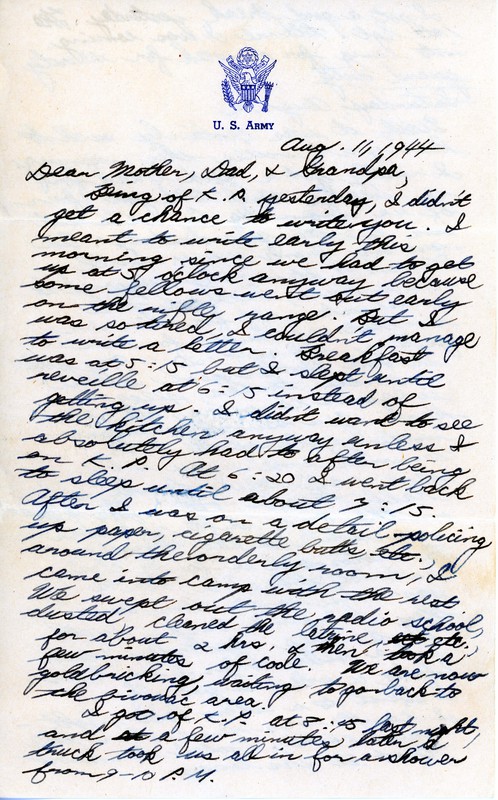 U. S. ARMY
Aug. 11, 1944
Dear Mother, Dad, & Grandpa,
Being of K.P. yesterday, I didn't
get a chance to write you. I
meant to write early this
morning since we had to get
up at 5 oclock anyway because
some fellows went out early
on the rifley range. But I
was so tired, I couldn't manage
to write a letter. Breakfast
was at 5:15 but I slept until
reveille at 6:15 instead of
getting up. I didn't want to see
the kitchen anyway unless I
absolutely had to after being
on K.P. At 6:20 I went back
to sleep until about 7:15.
After I was on a detail policing
up paper, cigarette butts etc.,
around the orderly room, I
came into camp with the rest
We swept out the radio school,
dusted, cleaned the latrine, etc.
for about 2 hrs, & then took a
few minutes of code. We are now
goldbricking, waiting to go back to
the bivouac area.
I got of K.P. at 8:45 last night,
and a few minutes later a
truck took us all in for a shower
from 9-10 P.M.